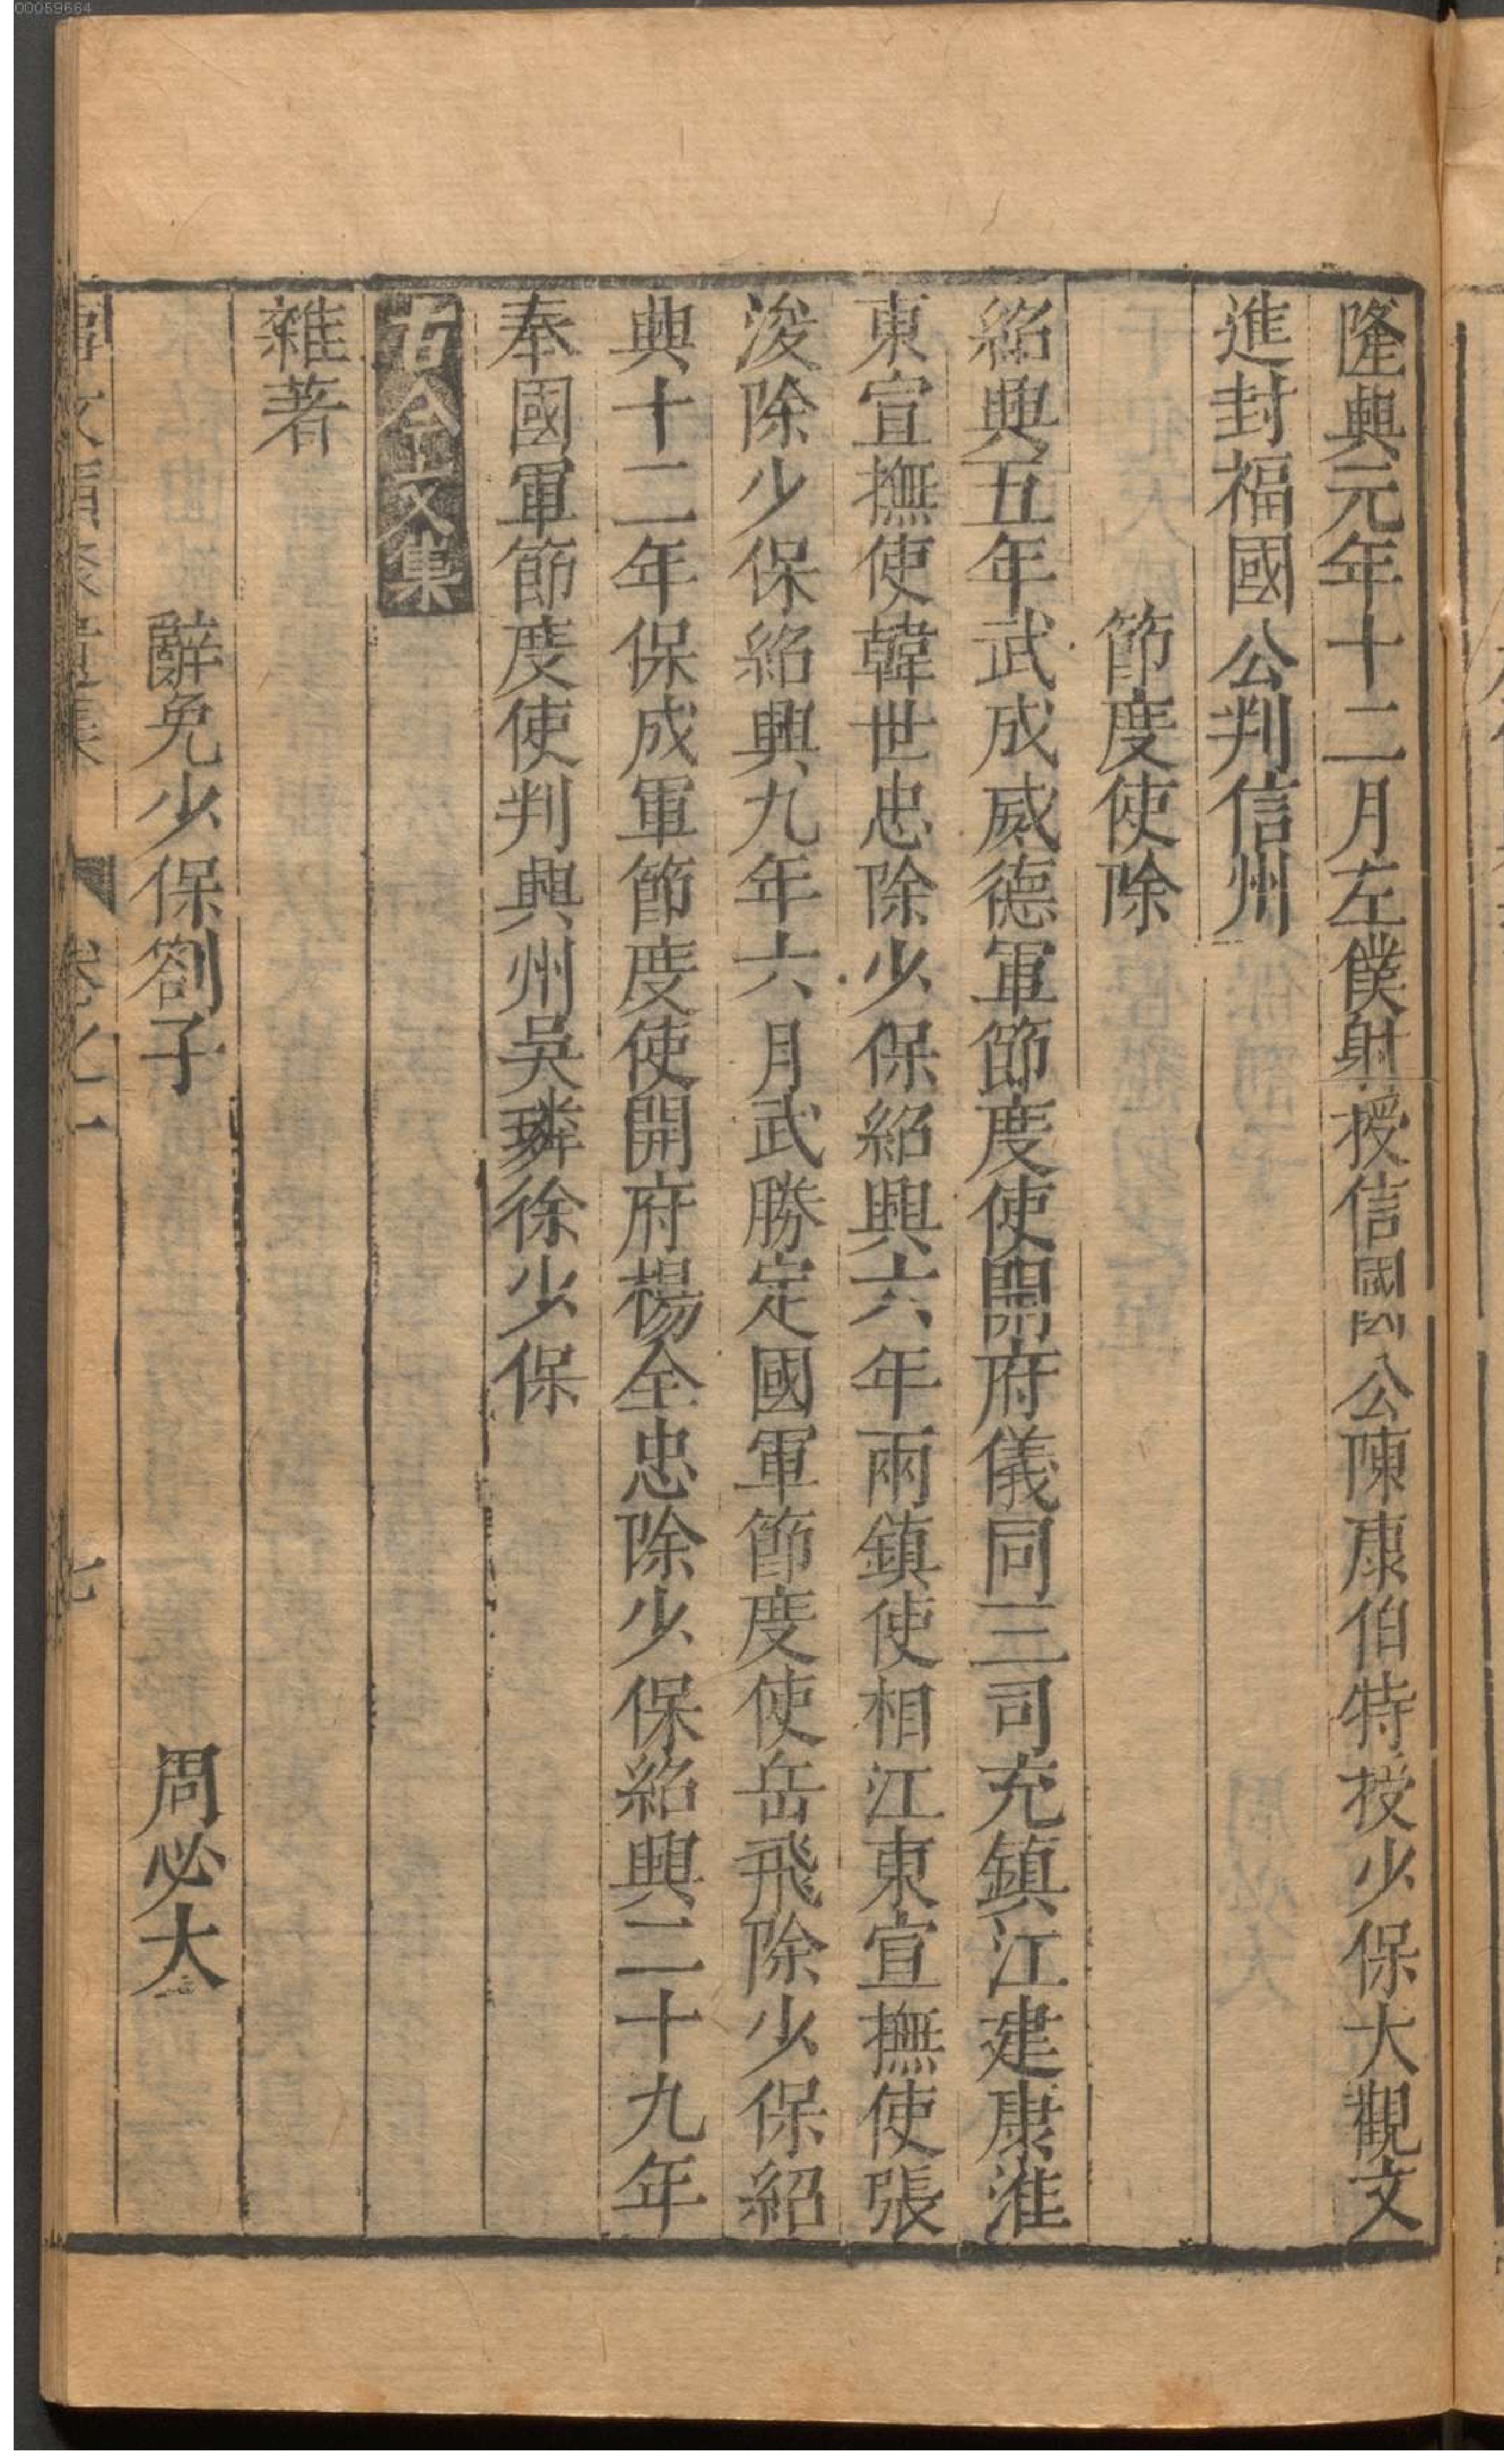 00059664
隆興元年十二月左僕射授信國公陳康伯特授少保大觀文
進封福國公判信州
節度使除
紹興五年武成威德軍節度使開府儀同三司充鎮江建康淮
東宣撫使韓世忠除少保紹興六年兩鎮使相江東宣撫使張
浚除少保紹興九年六月武勝定國軍節度使岳飛除少保紹
興十二年保成軍節度使開府楊全忠除少保紹興二十九年
奉國軍節度使判興州吳璘徐少保
古今文集
雜著
辭免少保劄子 周必大
卷之一 七